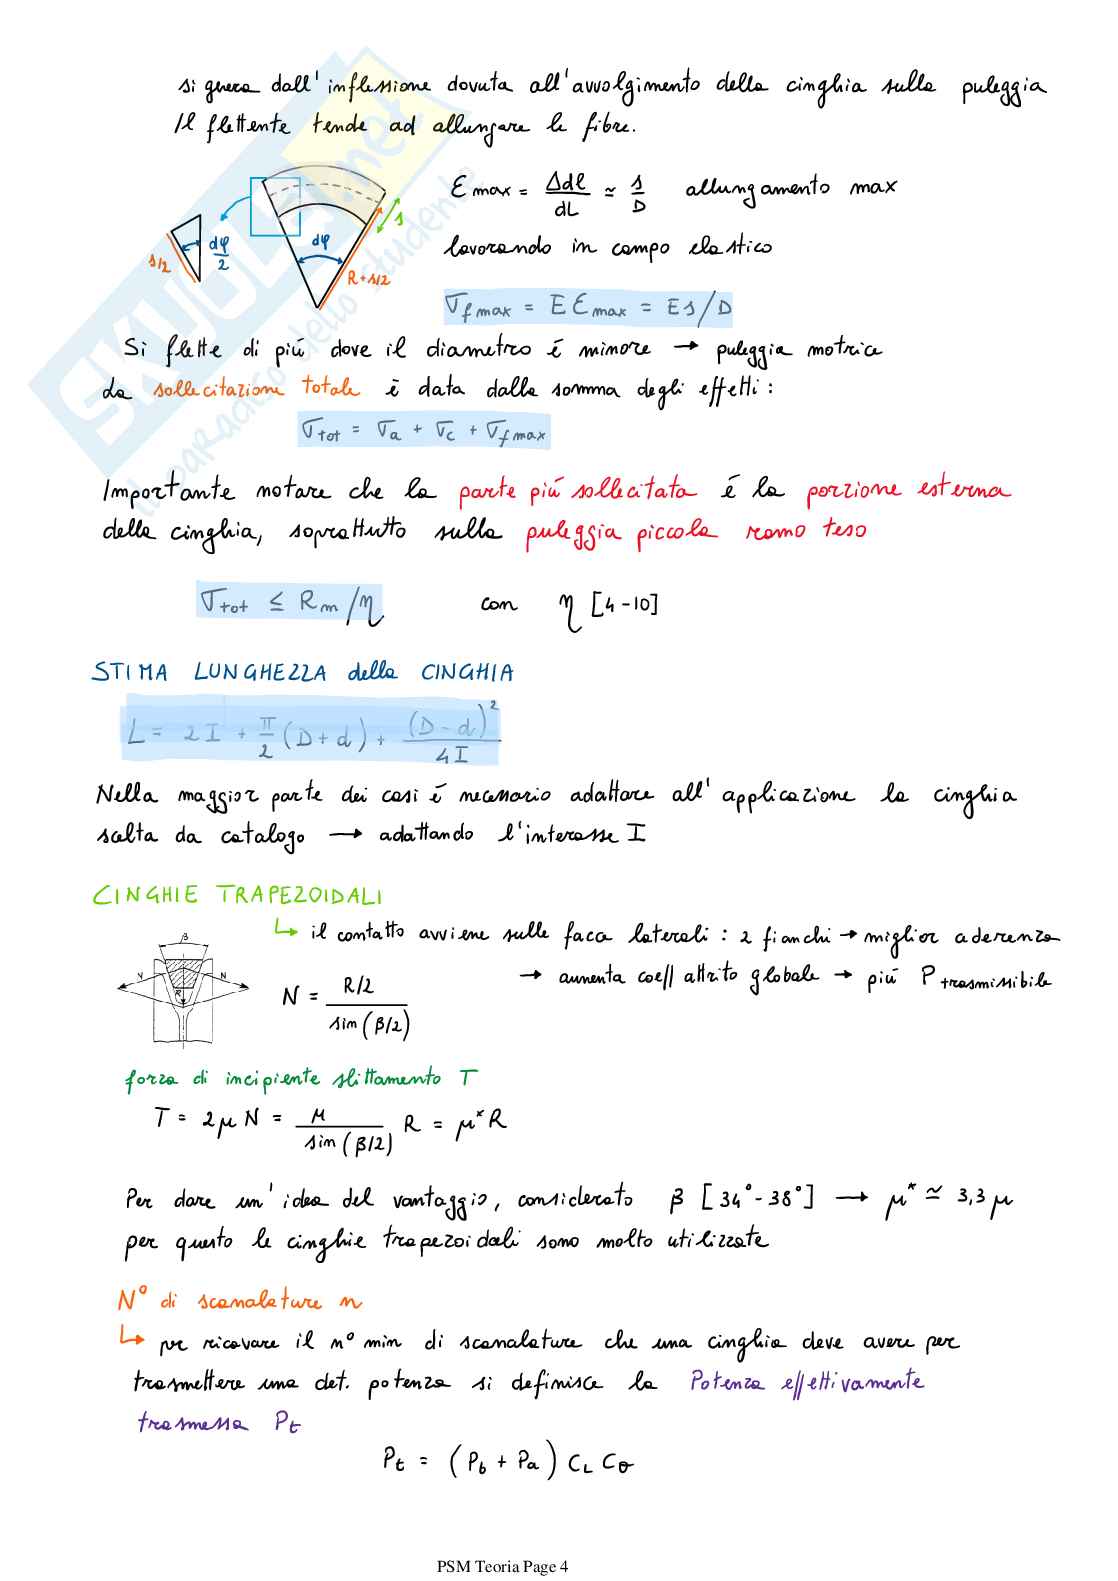 si genera dall'inflessione dovuta all'avvolgimento della cinghia sulla puleggia
Il flettente tende ad allungare le fibre.
εmax = Δdl/dL ≃ s/D allungamento max
lavorando in campo elastico
s/2 dφ/2 dφ R+s/2 s
σfmax = E εmax = Es/D
Si flette di più dove il diametro è minore → puleggia motrice
La sollecitazione totale è data dalla somma degli effetti:
σtot = σa + σc + σfmax
Importante notare che la parte più sollecitata é la porzione esterna
della cinghia, soprattutto sulla puleggia piccola ramo teso
σtot ≤ Rm/η con η [4-10]
STIMA LUNGHEZZA della CINGHIA
L = 2I + π/2 (D+d) + (D-d)²/4I
Nella maggior parte dei casi é necessario adattare all'applicazione la cinghia
scelta da catalogo → adattando l'interasse I
CINGHIE TRAPEZOIDALI
↳ il contatto avviene sulle facce laterali : 2 fianchi → miglior aderenza
→ aumenta coeff attrito globale → più P trasmissibile
β N N R
N = R/2 / sin(β/2)
forza di incipiente slittamento T
T = 2μN = μ/sin(β/2) R = μ* R
Per dare un'idea del vantaggio, considerato β [34°-38°] → μ* ≃ 3,3 μ
per questo le cinghie trapezoidali sono molto utilizzate
N° di scanalature n
↳ per ricavare il n° min di scanalature che una cinghia deve avere per
trasmettere una det. potenza si definisce la Potenza effettivamente
trasmessa Pt
Pt = (Pb + Pa) CL Cθ
SKUOLA.net
il paradiso dello studente
PSM Teoria Page 4